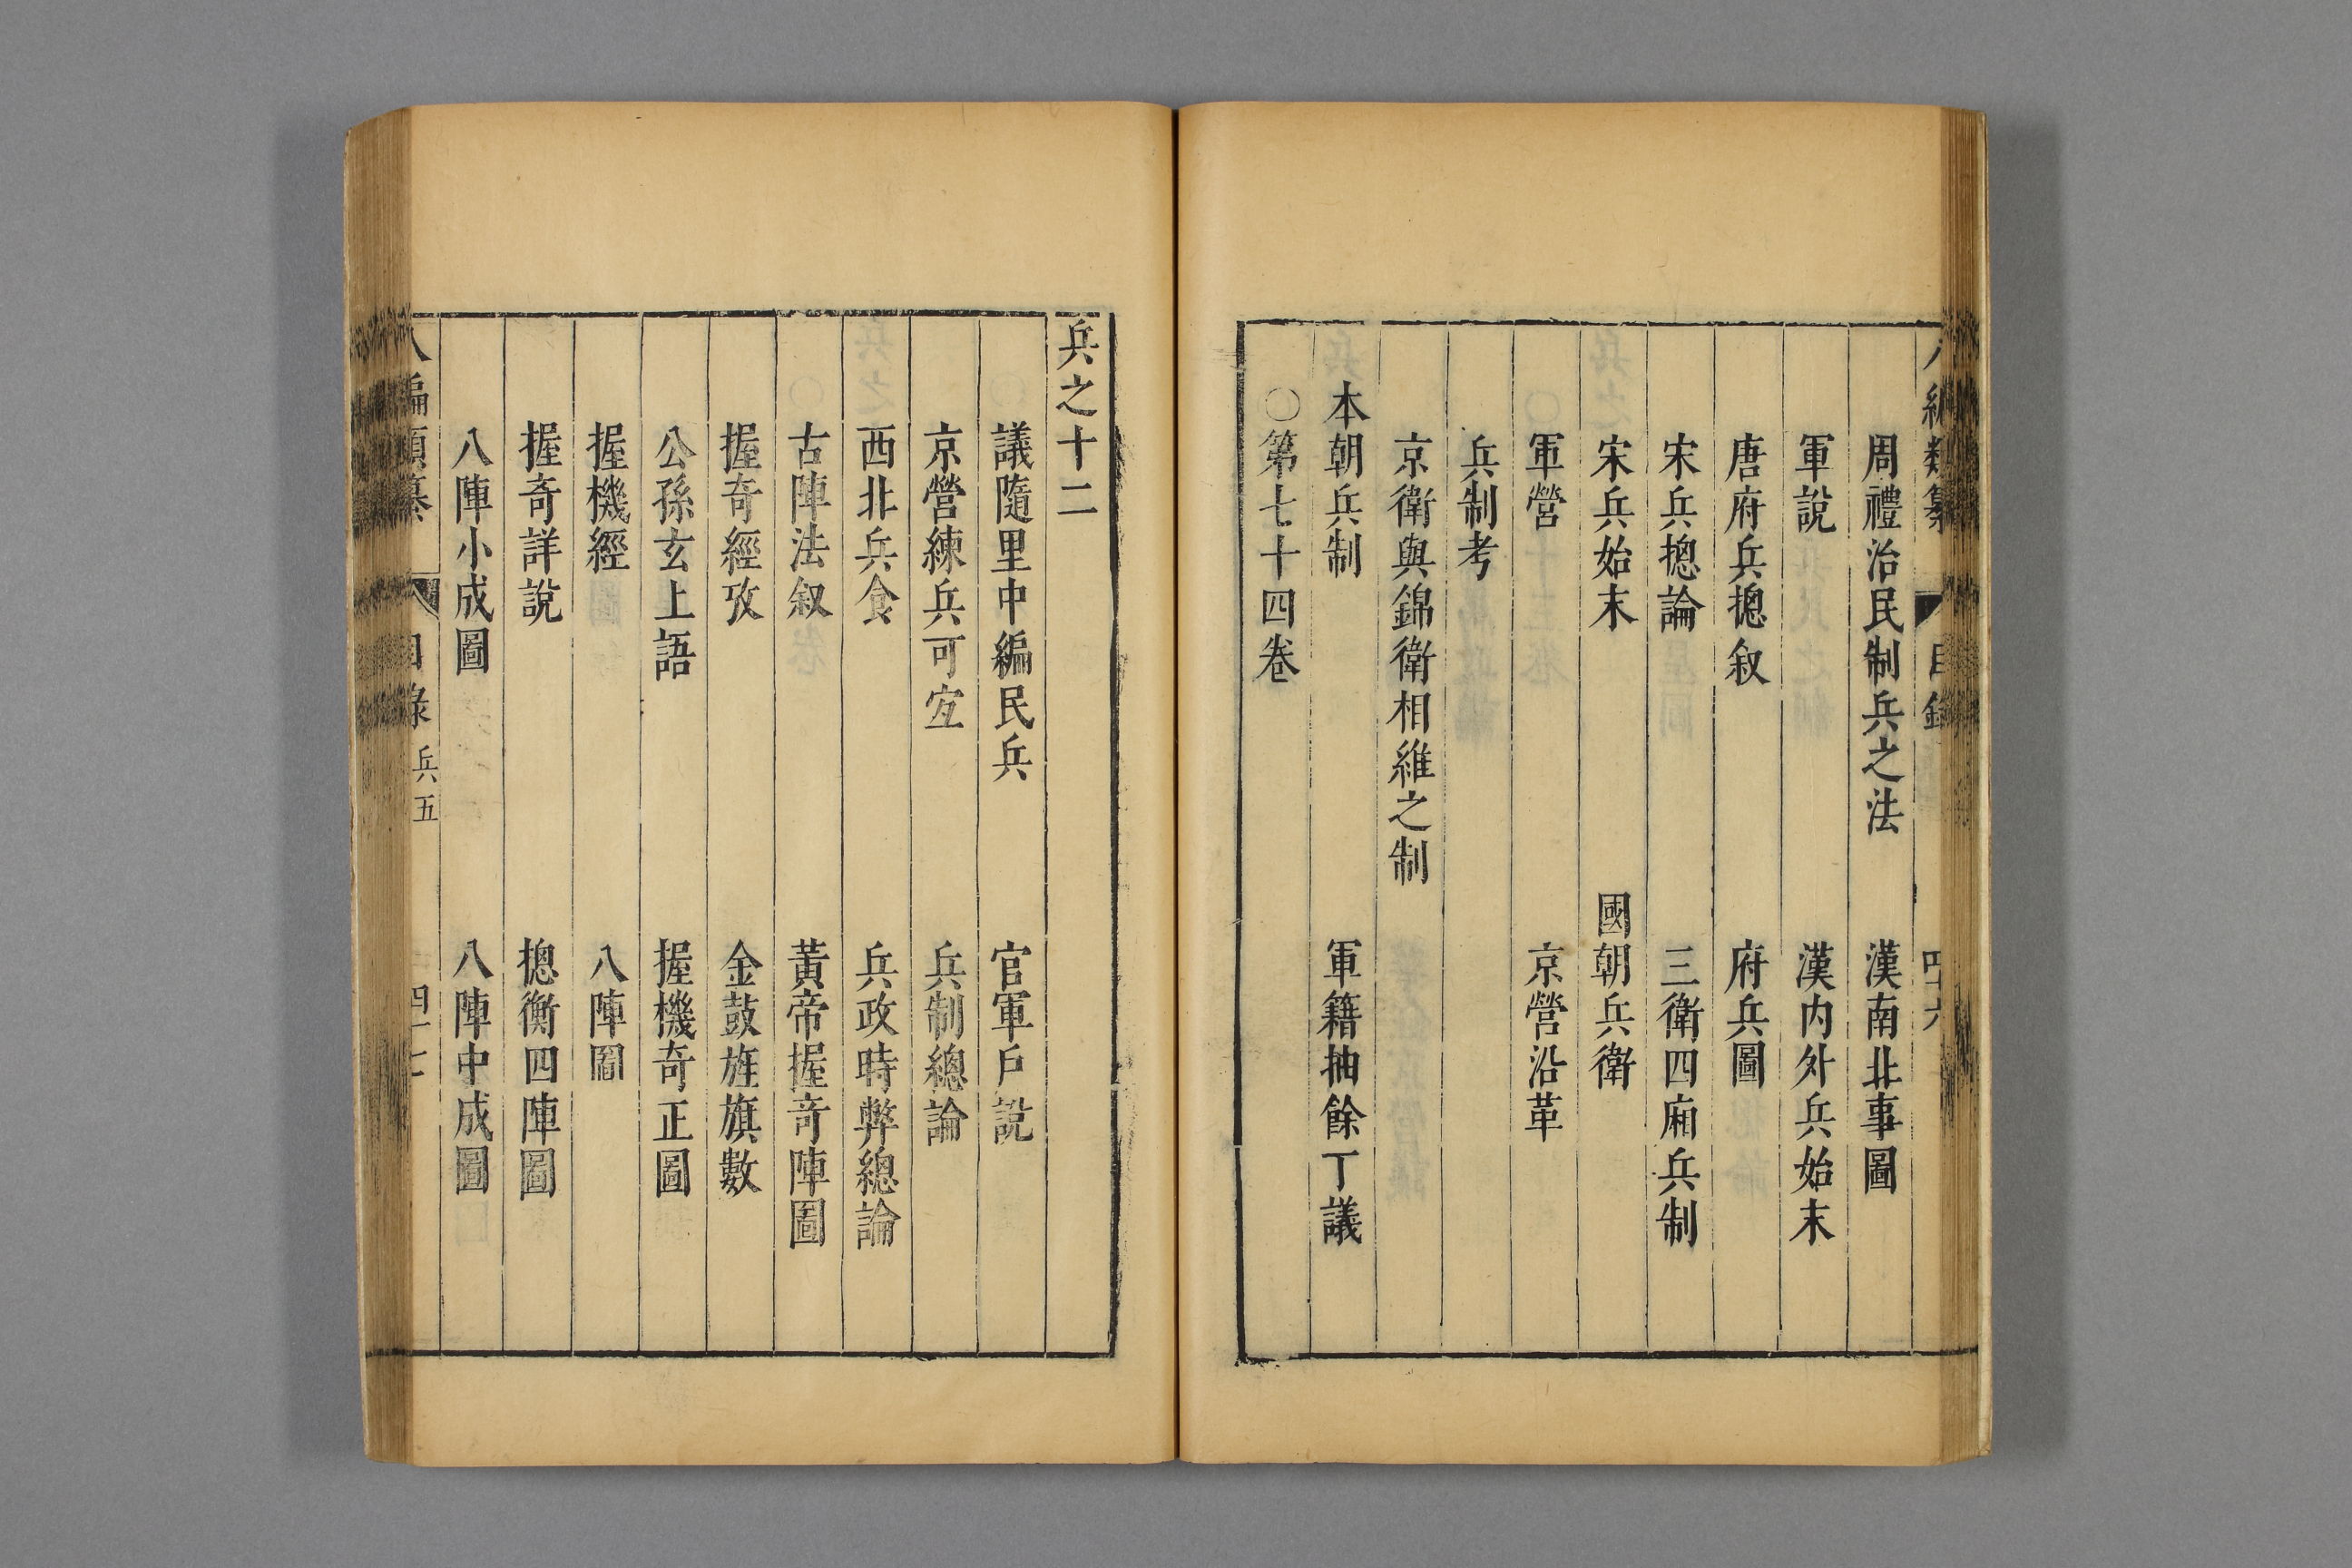 八編類纂 目錄 四十六
周禮治民制兵之法 漢南北事圖
軍說 漢內外兵始末
唐府兵摠叙 府兵圖
宋兵摠論 三衛四廂兵制
宋兵始末 國朝兵衛
軍營 京營沿革
兵制考
京衛與錦衛相維之制
本朝兵制 軍籍抽餘丁議
〇第七十四卷
兵之十二
議隨里中編民兵 官軍戶說
京營練兵可宐 兵制總論
西北兵食 兵政時弊總論
古陣法叙 黃帝握奇陣圖
握奇經攷 金鼓旌旗數
公孫玄上語 握機奇正圖
握機經 八陣圖
握奇詳說 摠衡四陣圖
八陣小成圖 八陣中成圖
八編類纂 目錄 兵五 四十七